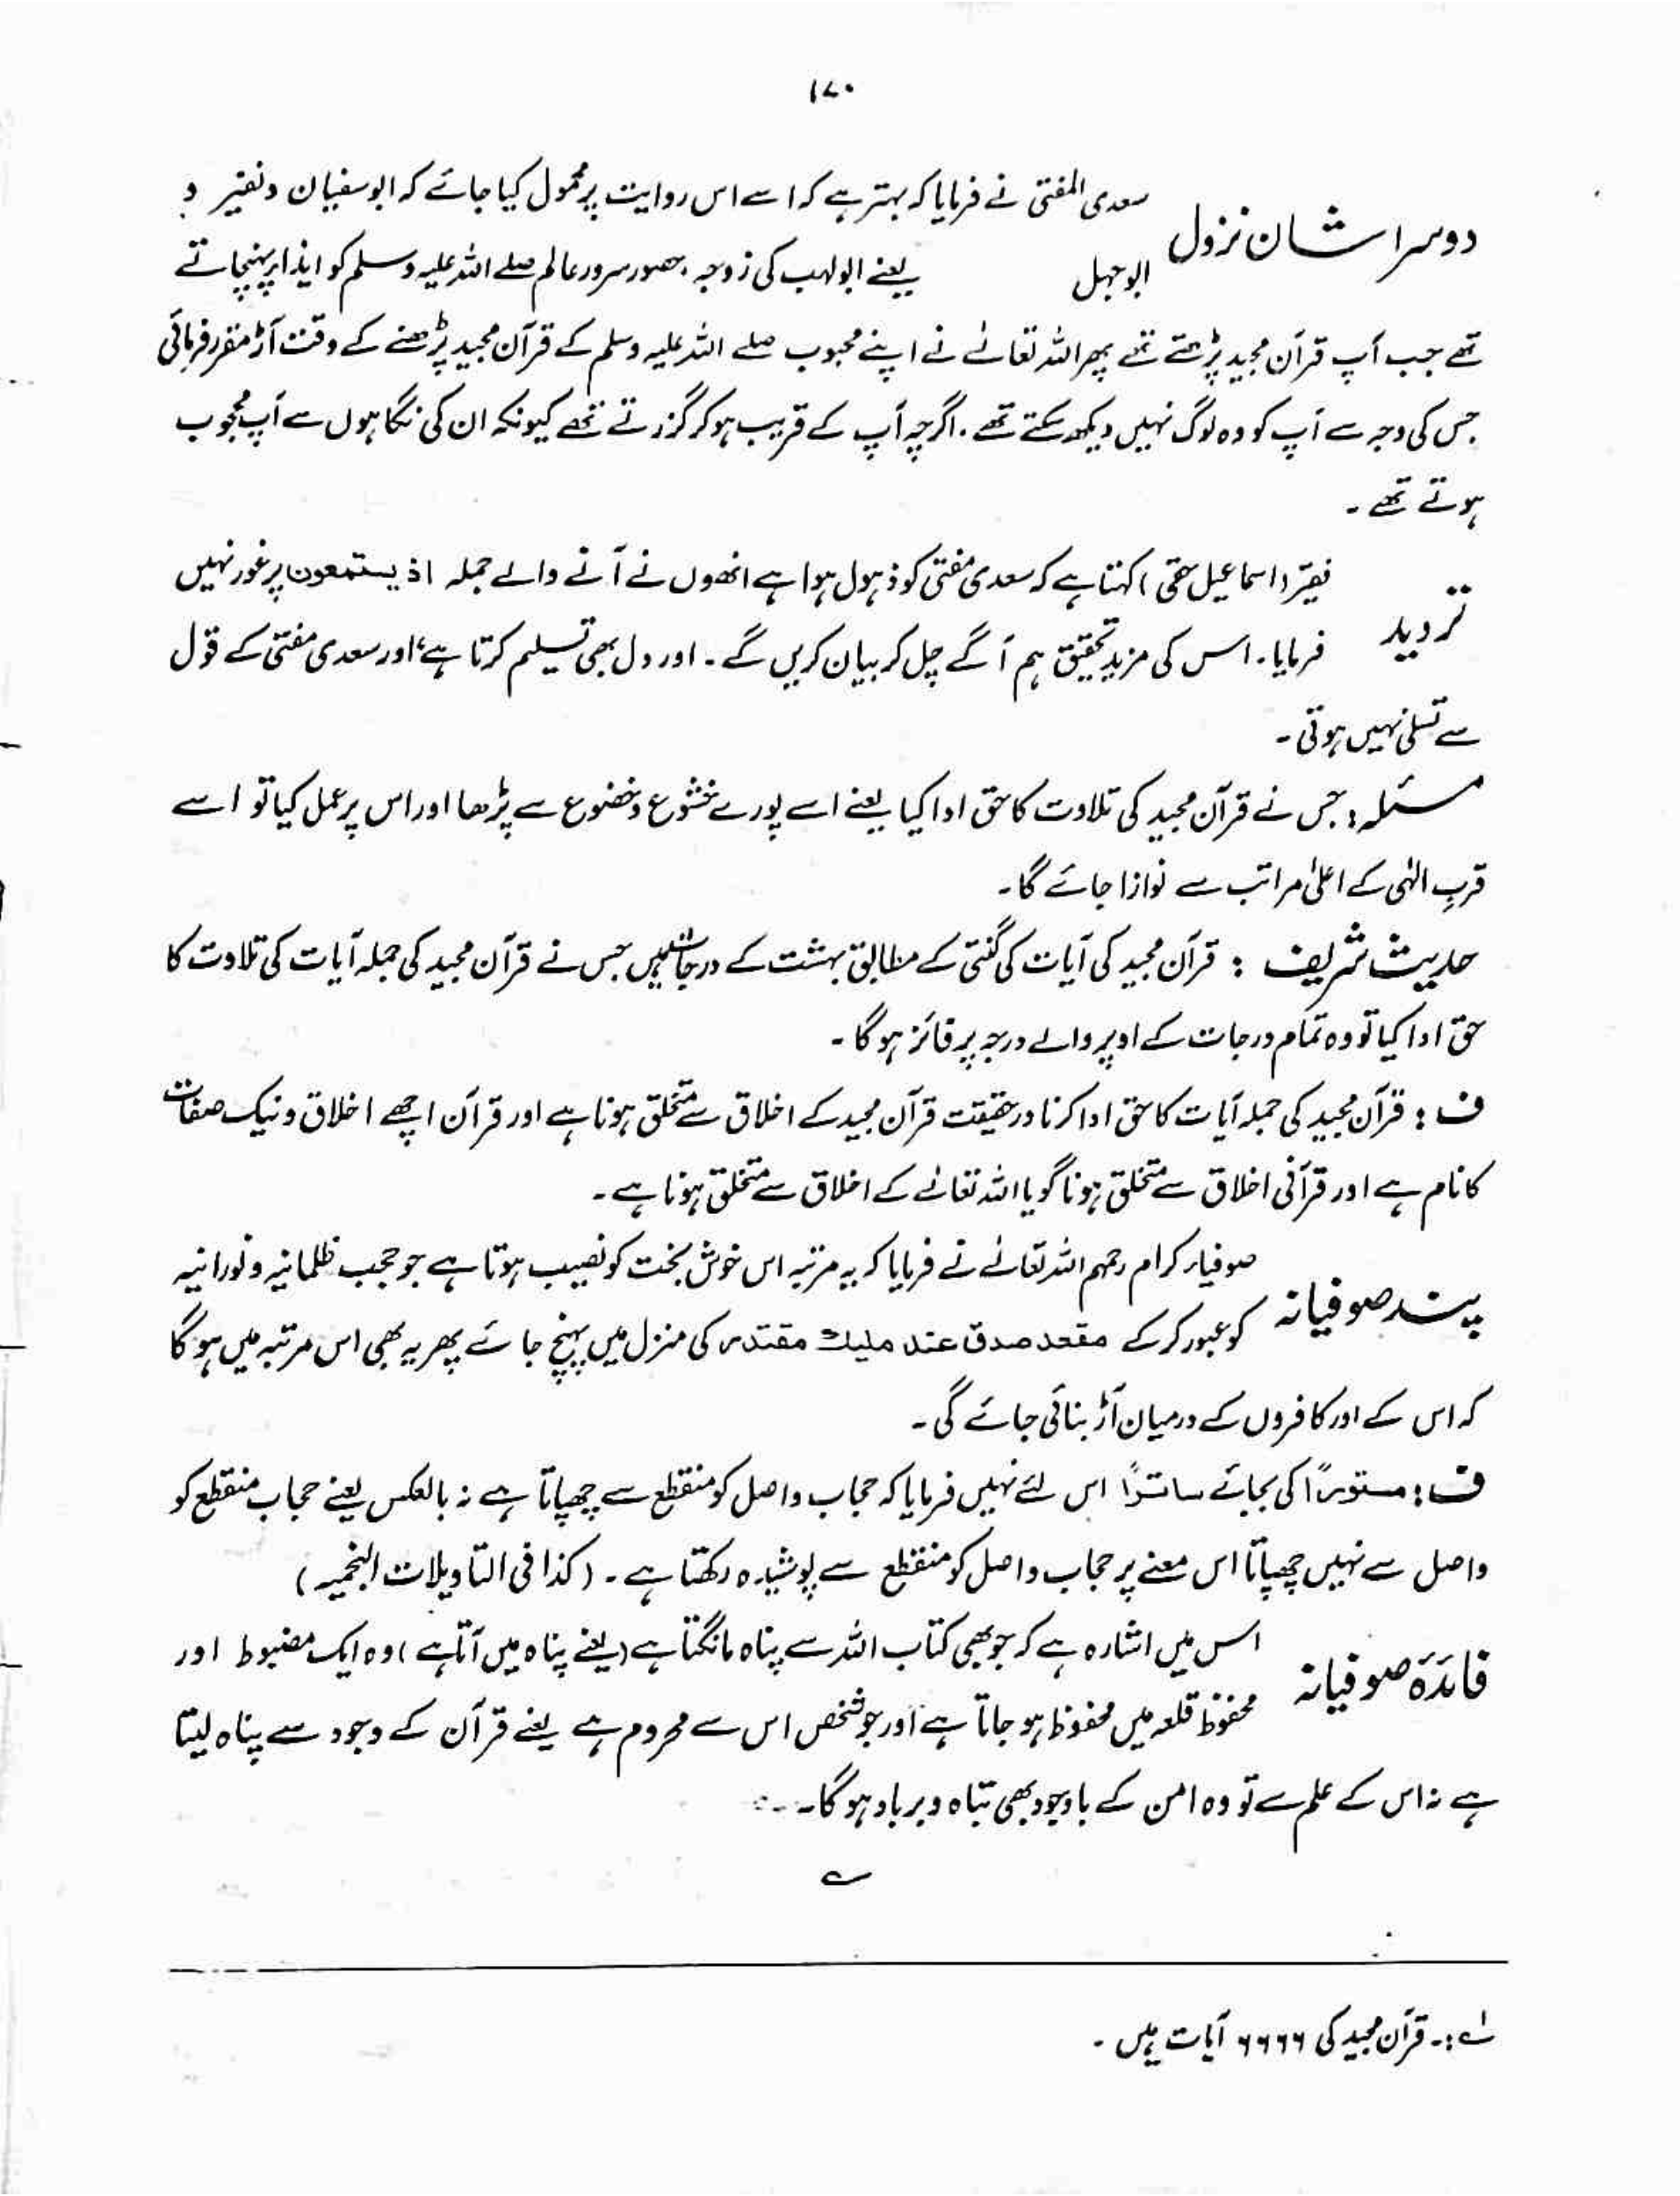 ۱۷۰
دوسرا شان نزول سعدی المفتی نے فرمایا کہ بہتر ہے کہ اسے اس روایت پر محمول کیا جائے کہ ابوسفیان ونفیر و
ابوجہل یعنے ابولہب کی زوجہ، حضور سرور عالم صلے اللہ علیہ وسلم کو ایذا پہنچاتے
تھے جب آپ قرآن مجید پڑھتے تھے پھر اللہ تعالےٰ نے اپنے محبوب صلے اللہ علیہ وسلم کے قرآن مجید پڑھنے کے وقت آڑ مقرر فرمائی
جس کی وجہ سے آپ کو وہ لوگ نہیں دیکھ سکتے تھے. اگرچہ آپ کے قریب ہو کر گزرتے تھے کیونکہ ان کی نگاہوں سے آپ محجوب
ہوتے تھے ۔
تردید فقیر (اسماعیل حقی) کہتا ہے کہ سعدی مفتی کو ذہول ہوا ہے انھوں نے آنے والے جملہ اذ یستمعون پر غور نہیں
فرمایا۔ اس کی مزید تحقیق ہم آگے چل کر بیان کریں گے ۔ اور دل بھی تسلیم کرتا ہے اور سعدی مفتی کے قول
سے تسلی نہیں ہوتی ۔
مسئلہ : جس نے قرآن مجید کی تلاوت کا حق ادا کیا یعنے اسے پورے خشوع و خضوع سے پڑھا اور اس پر عمل کیا تو اسے
قربِ الٰہی کے اعلیٰ مراتب سے نوازا جائے گا ۔
حدیث شریف : قرآن مجید کی آیات کی گنتی کے مطابق بہشت کے درجات ہیں جس نے قرآن مجید کی جملہ آیات کی تلاوت کا
حق ادا کیا تو وہ تمام درجات کے اوپر والے درجہ پر فائز ہو گا ۔
ف : قرآن مجید کی جملہ آیات کا حق ادا کرنا درحقیقت قرآن مجید کے اخلاق سے متخلق ہونا ہے اور قرآن اچھے اخلاق و نیک صفات
کا نام ہے اور قرآنی اخلاق سے متخلق ہونا گویا اللہ تعالےٰ کے اخلاق سے متخلق ہونا ہے ۔
پند صوفیانہ صوفیاء کرام رحمہم اللہ تعالےٰ نے فرمایا کہ یہ مرتبہ اس خوش بخت کو نصیب ہوتا ہے جو حجب ظلمانیہ و نورانیہ
کو عبور کر کے مقعد صدق عند ملیك مقتدر کی منزل میں پہنچ جائے پھر یہ بھی اس مرتبہ میں ہو گا
کہ اس کے اور کافروں کے درمیان آڑ بنائی جائے گی ۔
ف : مستورًا کی بجائے ساترًا اس لئے نہیں فرمایا کہ حجاب واصل کو منقطع سے چھپاتا ہے نہ بالعکس یعنے حجاب منقطع کو
واصل سے نہیں چھپاتا اس معنے پر حجاب واصل کو منقطع سے پوشیدہ رکھتا ہے ۔ (کذا فی التاویلات النجمیہ)
فائدہ صوفیانہ اس میں اشارہ ہے کہ جو بھی کتاب اللہ سے پناہ مانگتا ہے (یعنے پناہ میں آتا ہے) وہ ایک مضبوط اور
محفوظ قلعہ میں محفوظ ہو جاتا ہے اور جو شخص اس سے محروم ہے یعنے قرآن کے وجود سے پناہ لیتا
ہے نہ اس کے علم سے تو وہ امن کے باوجود بھی تباہ و برباد ہو گا ۔
لے :۔ قرآن مجید کی ۶۶۶۶ آیات ہیں ۔